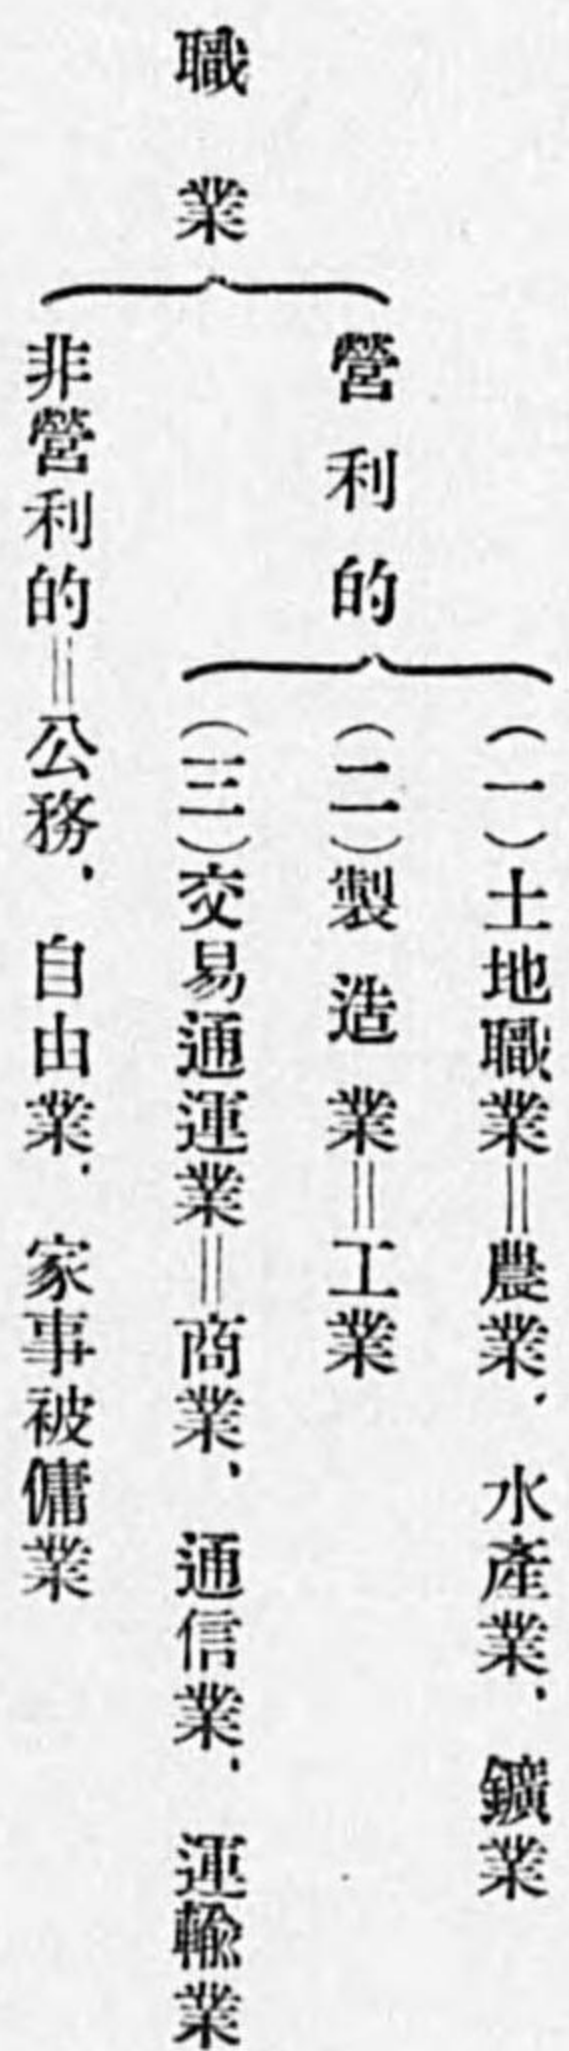 職業
營利的
(一)土地職業＝農業、水產業、鑛業
(二)製造業＝工業
(三)交易通運業＝商業、通信業、運輸業
非營利的＝公務、自由業、家事被傭業